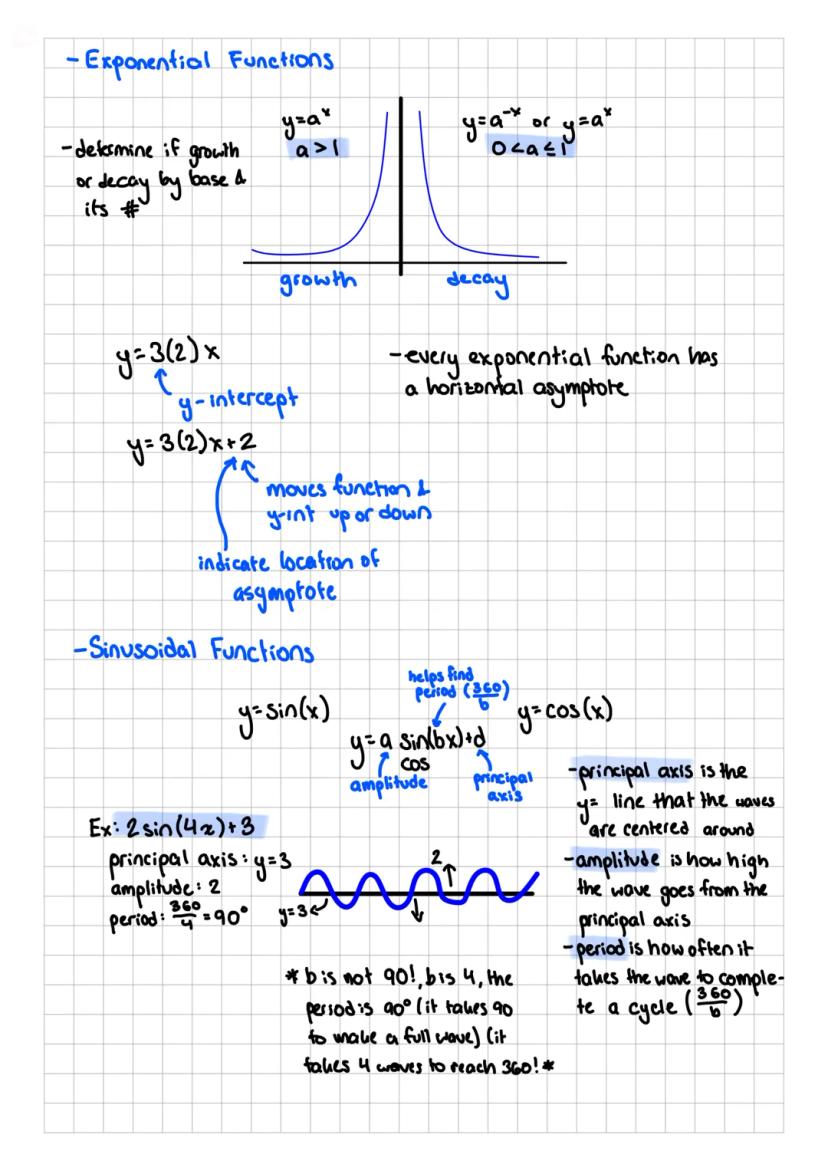 - Exponential Functions
y=aˣ
a>1
y=a⁻ˣ or y=aˣ
0<a≤1
- determine if growth
or decay by base &
its #
growth
decay
y=3(2)x
y-intercept
- every exponential function has
a horizontal asymptote
y=3(2)x+2
moves function &
y-int up or down
indicate location of
asymptote
- Sinusoidal Functions
helps find
period (360/b)
y=sin(x)
y=cos(x)
y=a sin(bx)+d
cos
amplitude
principal
axis
- principal axis is the
y= line that the waves
are centered around
- amplitude is how high
the wave goes from the
principal axis
- period is how often it
takes the wave to comple-
te a cycle (360/b)
Ex: 2sin(4x)+3
principal axis: y=3
amplitude: 2
period: 360/4 = 90°
2
y=3
* b is not 90!, b is 4, the
period is 90° (it takes 90
to make a full wave) (it
takes 4 waves to reach 360! *